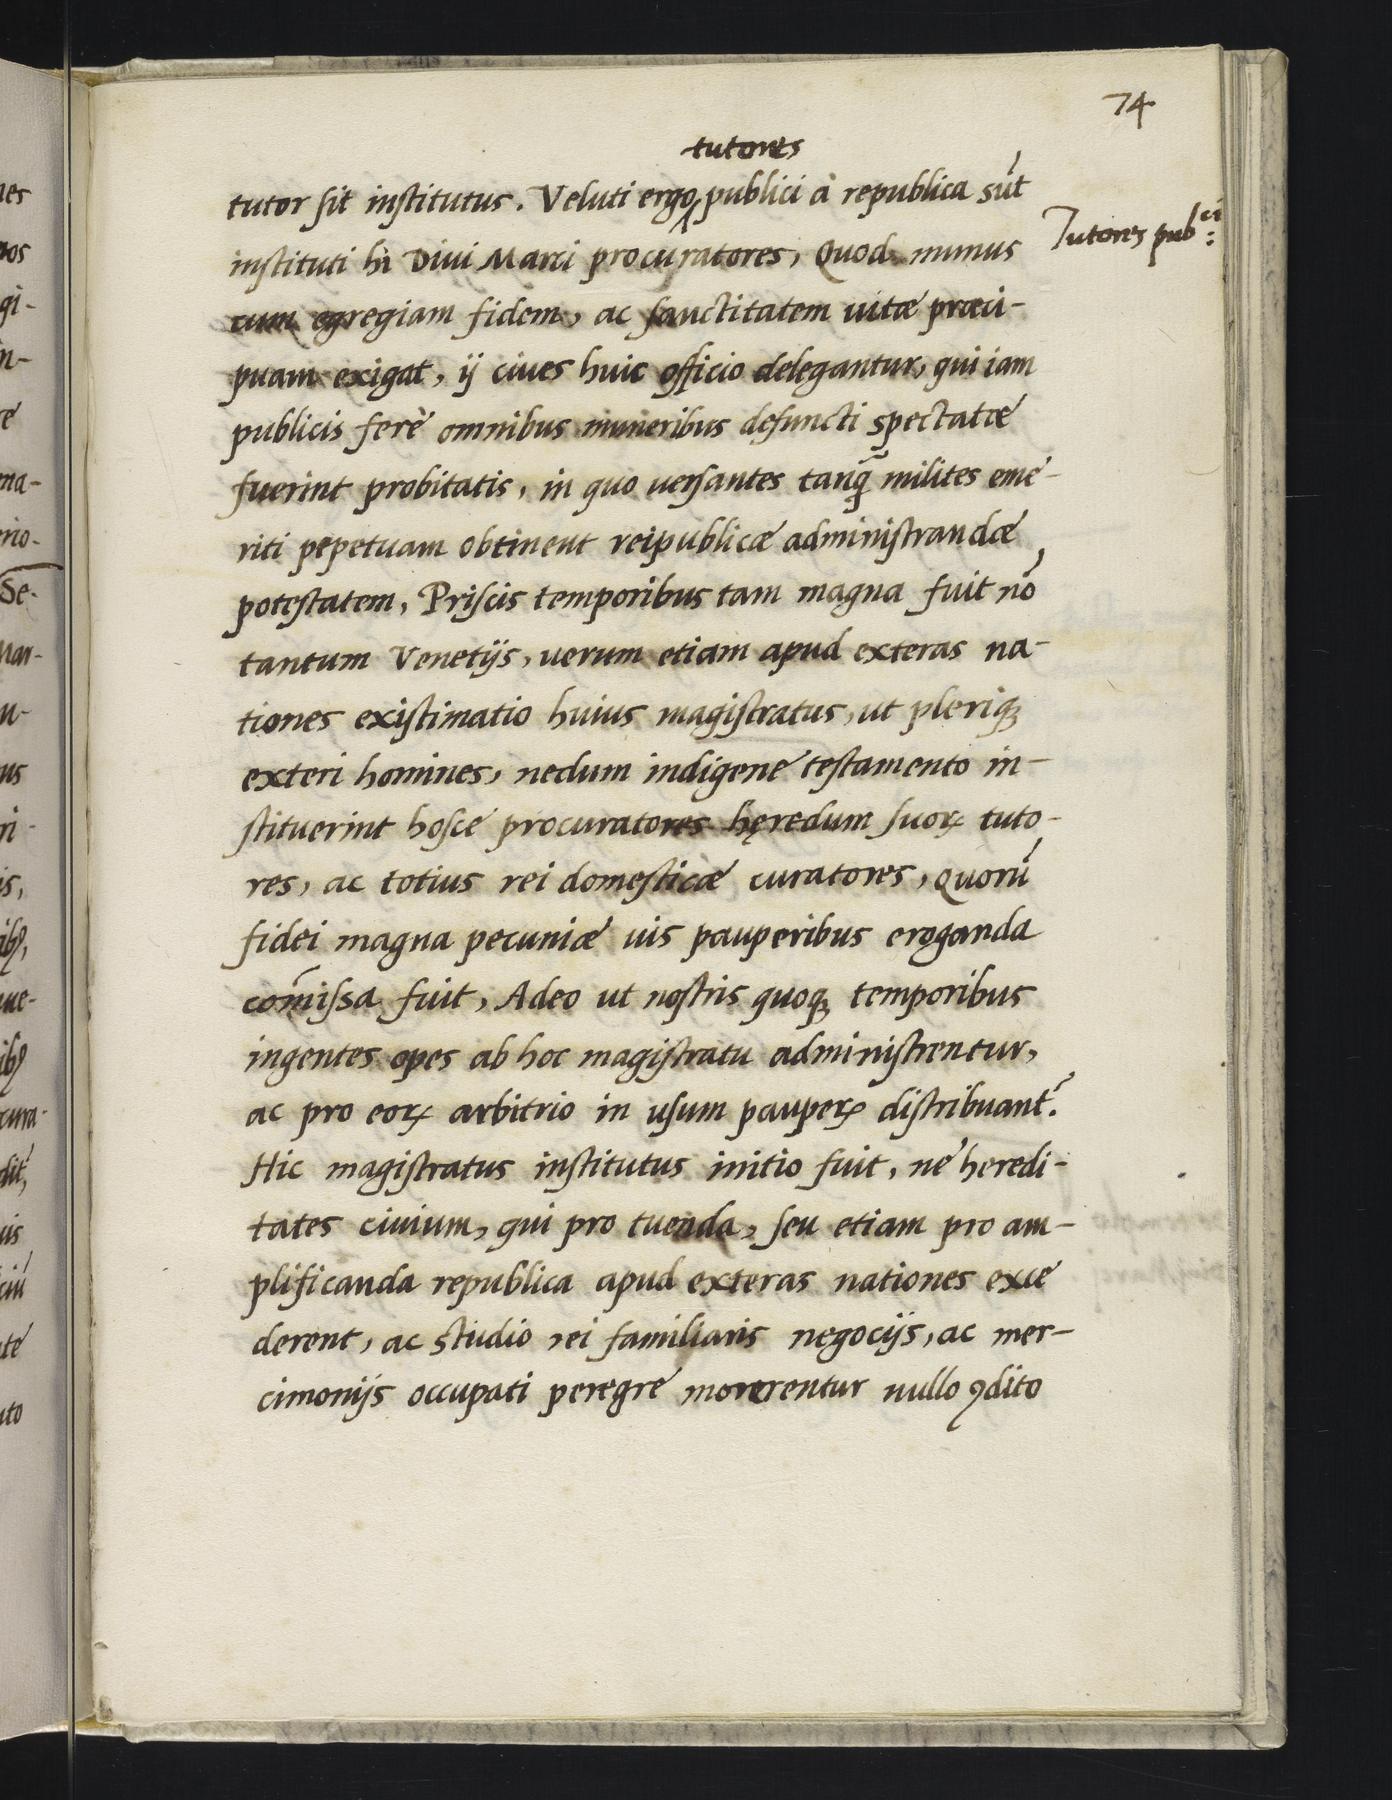 74
tutores
tutor sit institutus. Veluti ergo publici à republica sūt
Tutores pubci:
instituti hi Diui Marci procuratores, Quod munus
cum egregiam fidem, ac sanctitatem uitæ præci-
puam exigat, ij ciues huic officio delegantur, qui iam
publicis ferè omnibus muneribus defuncti spectatæ
fuerint probitatis, in quo uersantes tanq̃ milites eme-
riti pepetuam obtinent reipublicæ administrandæ
potestatem, Priscis temporibus tam magna fuit nō
tantum Venetijs, uerum etiam apud exteras na-
tiones existimatio huius magistratus, ut pleriqꝫ
exteri homines, nedum indigene testamento in-
stituerint hosce procuratores hęredum suoꝝ tuto-
res, ac totius rei domesticæ curatores, Quorū
fidei magna pecuniæ uis pauperibus eroganda
com̄issa fuit, Adeo ut nostris quoqꝫ temporibus
ingentes opes ab hoc magistratu administrentur,
ac pro eoꝝ arbitrio in usum paupeꝝ distribuant̃.
Hic magistratus institutus initio fuit, ne heredi-
tates ciuium, qui pro tuenda, seu etiam pro am-
plificanda republica apud exteras nationes exce
derent, ac studio rei familiaris negocijs, ac mer-
cimonijs occupati peregre morerentur nullo ꝯdito